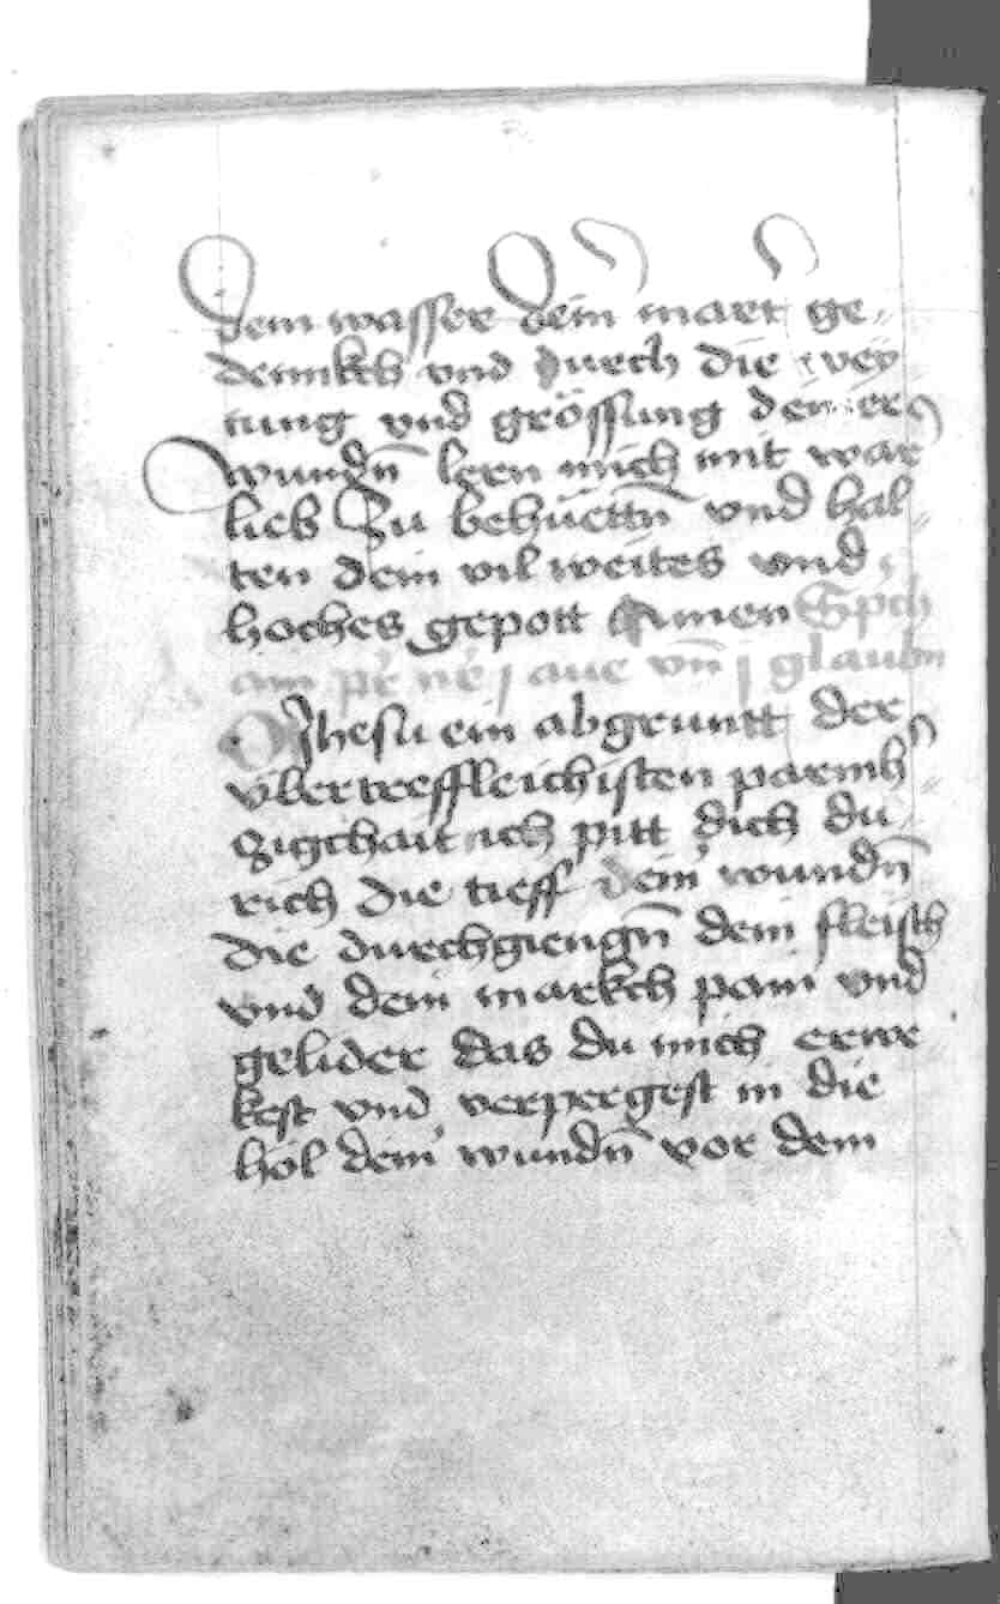 dem wasser dein̄ mart̓ ge⸗
dennkch vnd durch die wey
tung vnd grössung deiner
wundn̄ lern mich mit war̓
lieb zu behüettn̄ vnd hal⸗
ten dein vil weites vnd
hoches gepott Amen Sp̓ch
ain pr̄ nr̄ j aue vn̄ j glaubn̄
O Jhesu ein abgruntt der
vbertreffleichisten parmh̓⸗
zigchait ich pitt dich du
rich die tieff dein̓ wundn̄
die durchgiengn̄ dein fleisch
vnd dein markch pain vnd
gelider das du mich erwe
kest vnd verpergest in die
höl dein̓ wundn̄ vor dem